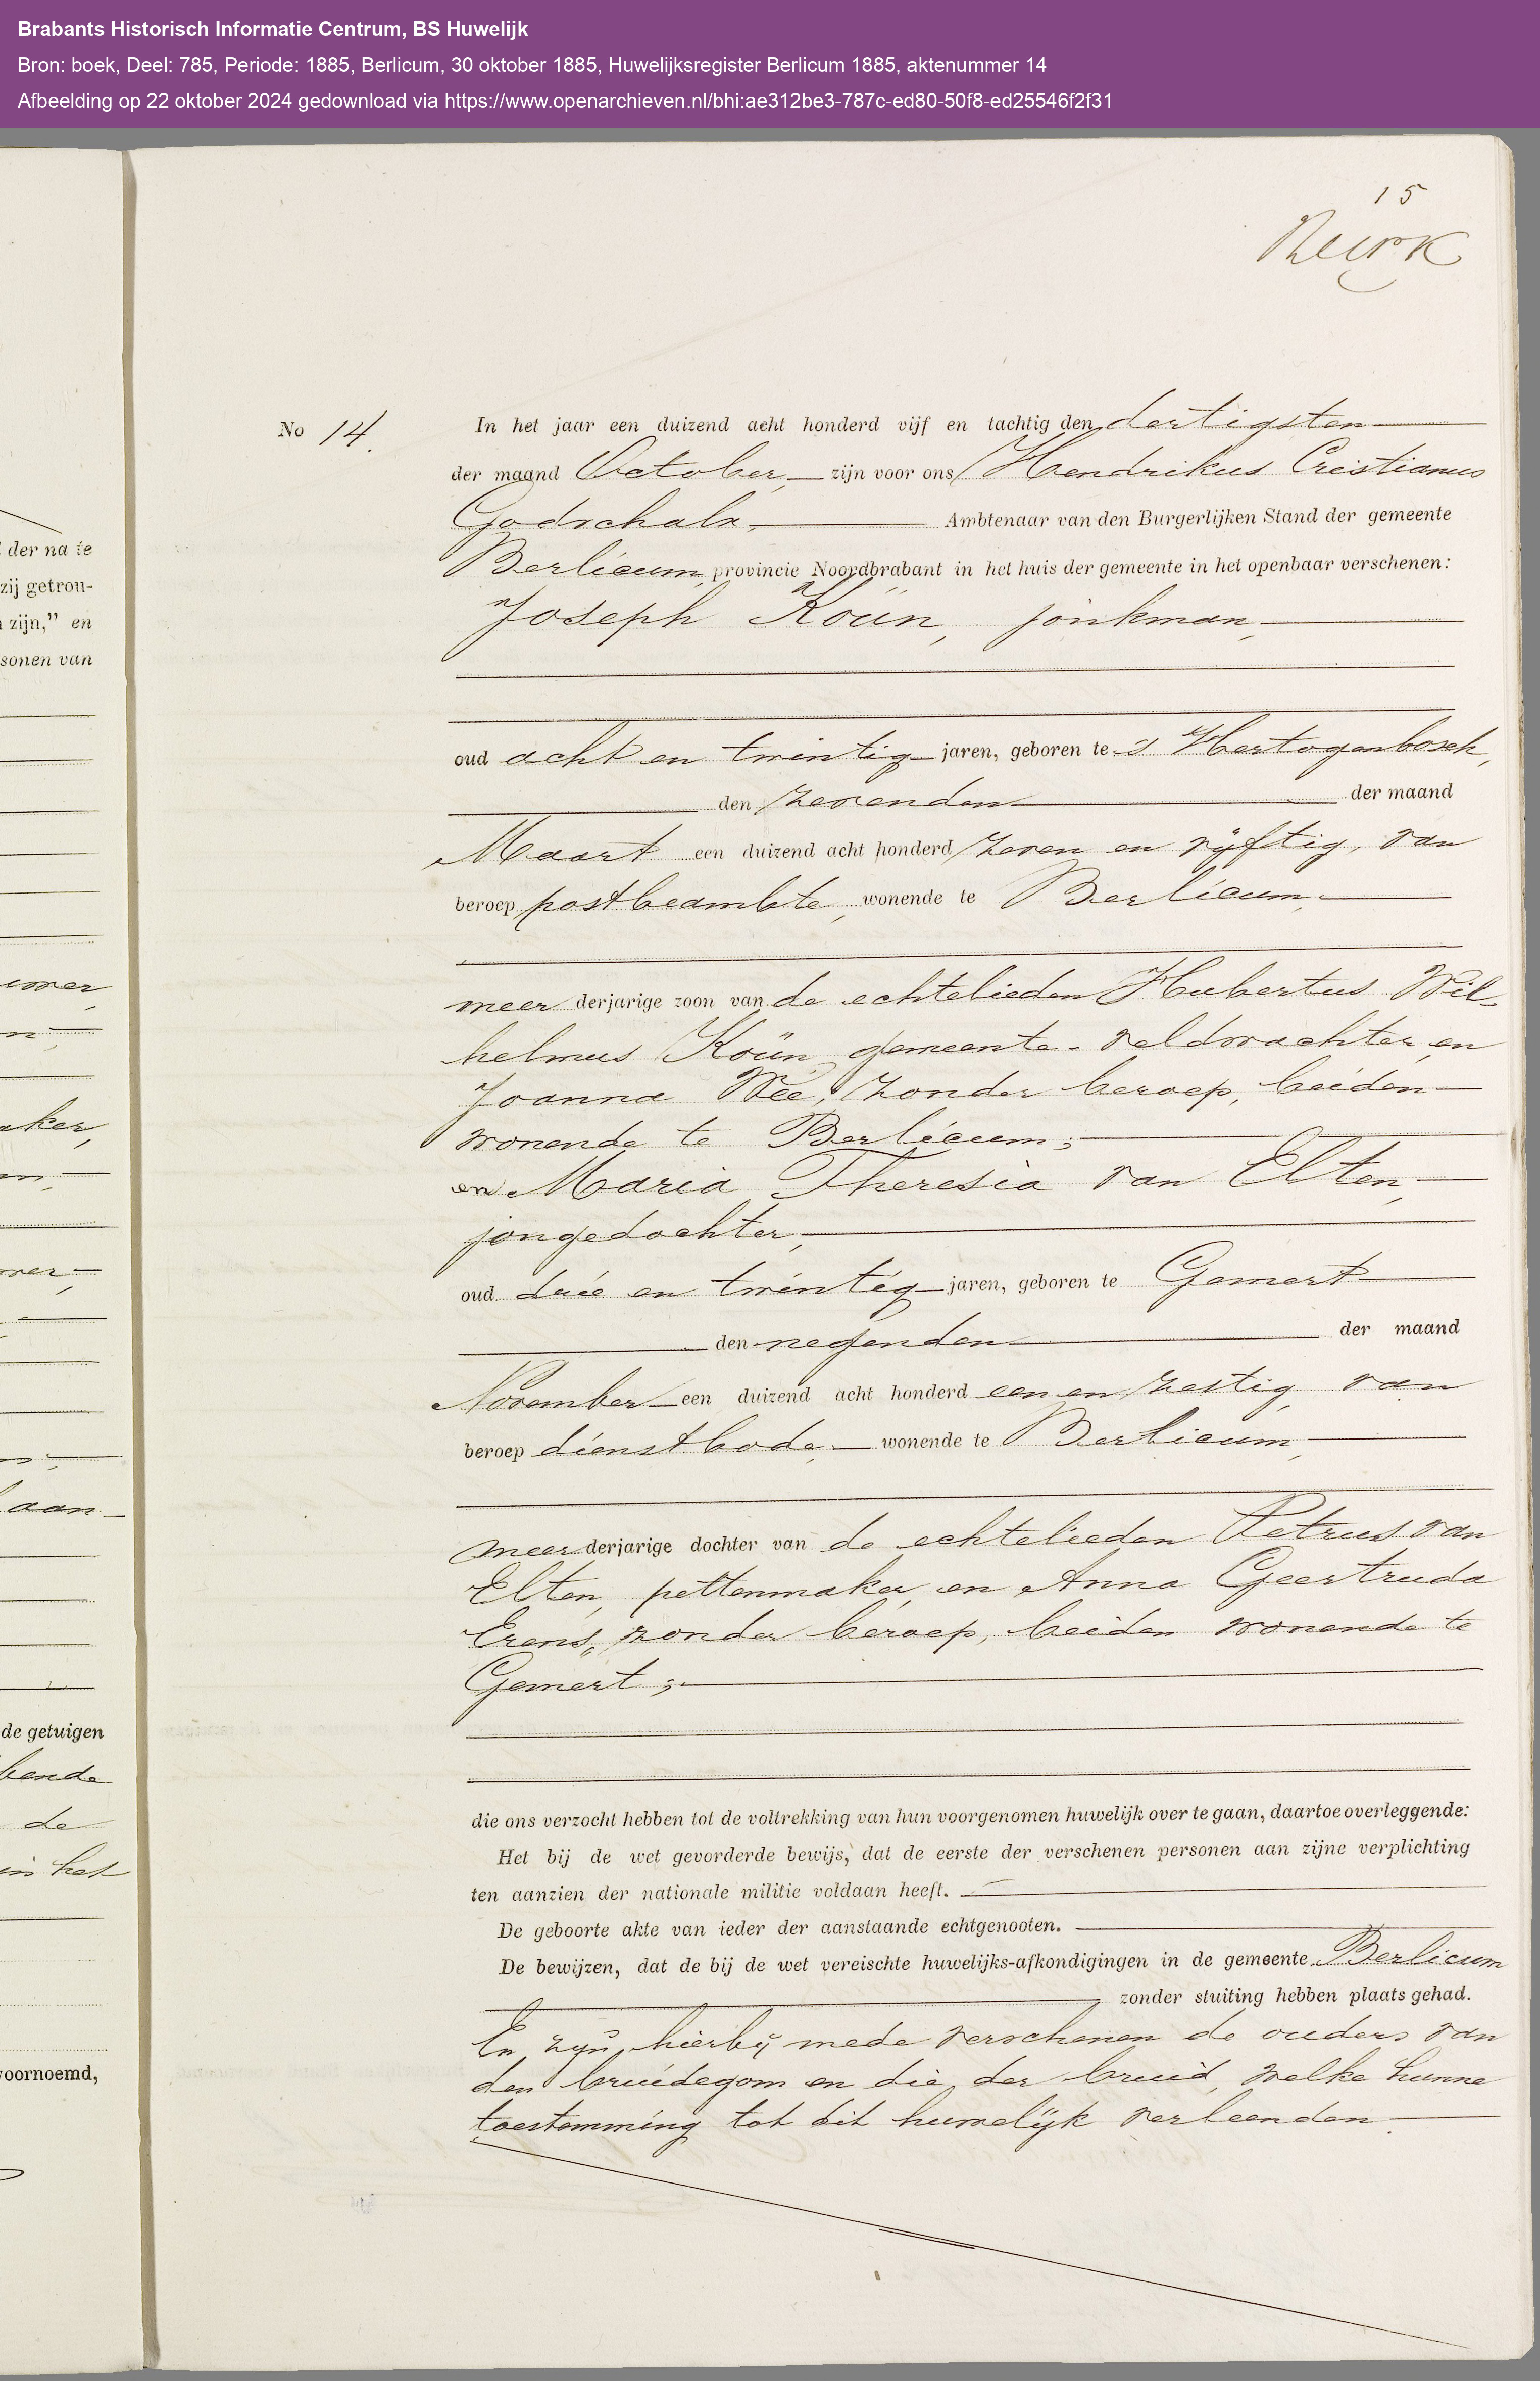 Brabants Historisch Informatie Centrum, BS Huwelijk
Bron: boek, Deel: 785, Periode: 1885, Berlicum, 30 oktober 1885, Huwelijksregister Berlicum 1885, aktenummer 14
Afbeelding op 22 oktober 2024 gedownload via https://www.openarchieven.nl/bhi:ae312be3-787c-ed80-50f8-ed25546f2f31
15
No 14.
In het jaar een duizend acht honderd vijf en tachtig den dertigsten
der maand October, zijn voor ons Hendrikus Cristianus
Godschalx, Ambtenaar van den Burgerlijken Stand der gemeente
Berlicum, provincie Noordbrabant in het huis der gemeente in het openbaar verschenen:
Joseph Koün, jonkman,
oud acht en twintig jaren, geboren te 's Hertogenbosch,
den zevenden der maand
Maart een duizend acht honderd zeven en vijftig, van
beroep postbeambte, wonende te Berlicum,
meer derjarige zoon van de echtelieden Hubertus Wil-
helmus Koün, gemeente-veldwachter, en
Joanna Wée, zonder beroep, beiden
wonende te Berlicum;
en Maria Theresia van Elten,
jongedochter,
oud drie en twintig jaren, geboren te Gemert
den negenden der maand
November een duizend acht honderd een en zestig, van
beroep dienstbode, wonende te Berlicum,
meerderjarige dochter van de echtelieden Petrus van
Elten, pettenmaker, en Anna Geertruda
Erens, zonder beroep, beiden wonende te
Gemert;
die ons verzocht hebben tot de voltrekking van hun voorgenomen huwelijk over te gaan, daartoe overleggende:
Het bij de wet gevorderde bewijs, dat de eerste der verschenen personen aan zijne verplichting
ten aanzien der nationale militie voldaan heeft.
De geboorte akte van ieder der aanstaande echtgenooten.
De bewijzen, dat de bij de wet vereischte huwelijks-afkondigingen in de gemeente Berlicum
zonder stuiting hebben plaats gehad.
En zijn hierbij mede verschenen de ouders van
den bruidegom en die der bruid, welke hunne
toestemming tot dit huwelijk verleenden.
der na te
zij getrou-
zijn," en
sonen van
aker,
aan
de getuigen
de
in het
voornoemd,